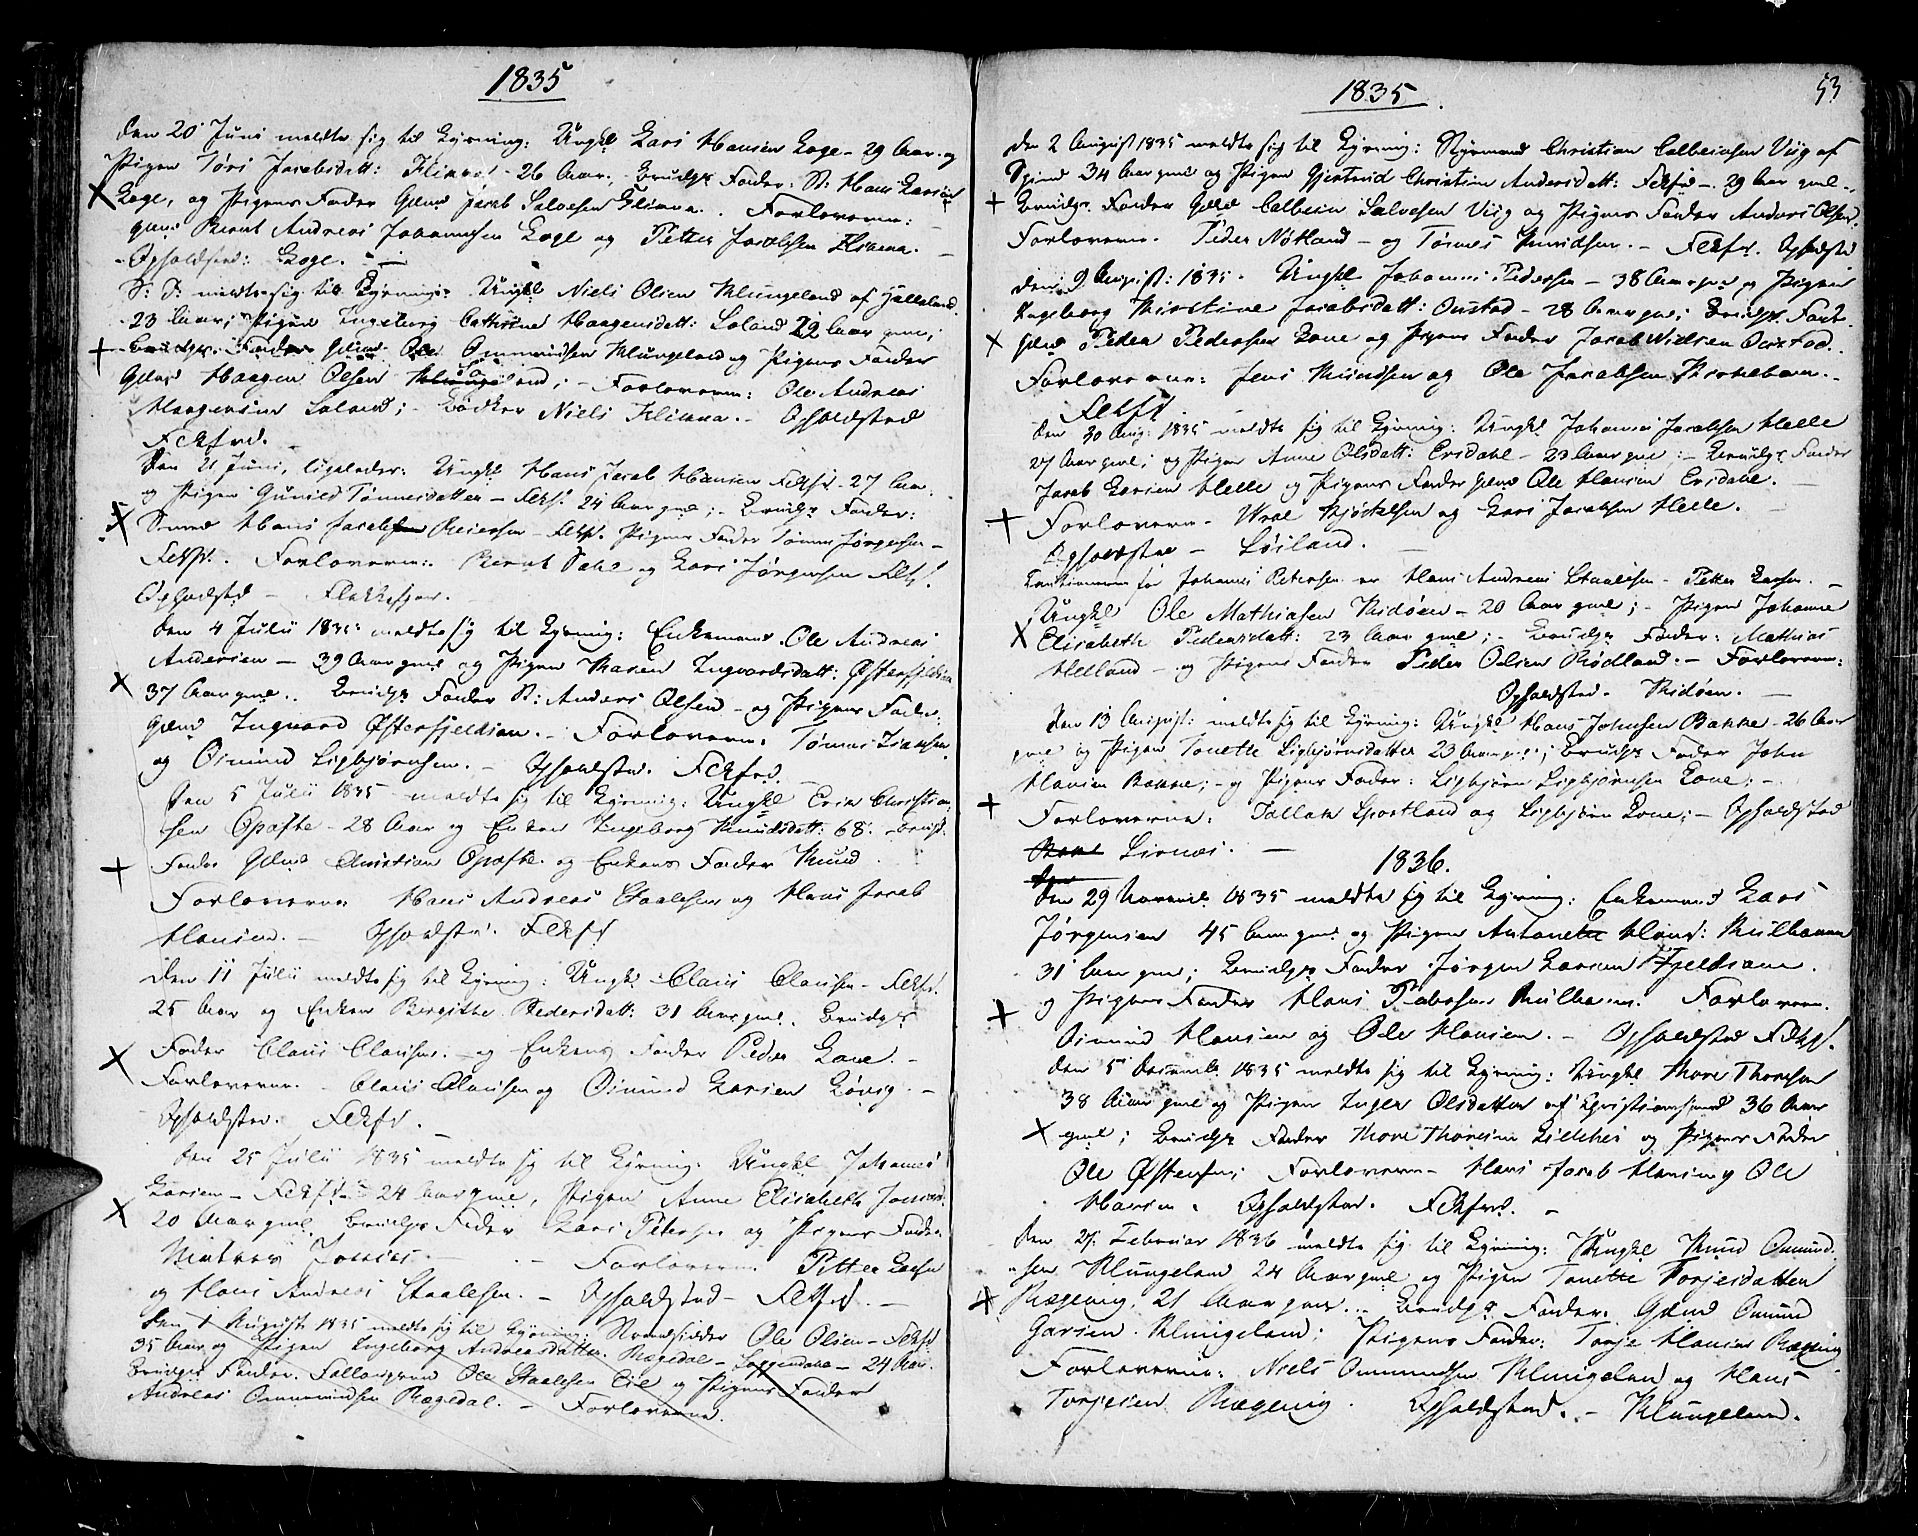 1835
Den 20 Juni meldte sig til Lysning: Ungkl Lars Hansen Loge - 29 Aar og
Pigen Tøri Jacobsdatt: Flikka - 26 Aar; Brudgs Fader: S: Hans Larsen
Loge, og Pigens Fader Gmd Jacob Salvesen Flikka. Forlovere:
Gmd Bernt Andreas Johannesen Loge og Petter Jacobsen Flikka. -
Opholdsted: Loge. -
S: D: meldte sig til Lysning: Ungkl Niels Olsen Klungeland af Helleland
23 Aar; Pigen Ingeborg Cathrine Haagensdatt: Loland 22 Aar gml;
Brudgs. Fader Gmd Ole Ommundsen Klungeland og Pigens Fader
Gmd Haagen Olsen Loland; - Forlovere: Ole Andreas
Haagensen Loland; - Bødker Niels Flikka. - Opholdsted
Fekfrd. -
Den 21 Juni, ligeledes: Ungkl Hans Jacob Hansen Fekfd - 27 Aar.
og Pigen Gunild Tønnesdatter - Fekf. 24 Aar gml; - Brudgs Fader:
Hans Jacobsen Reiersen - Fekf. Pigens Fader Tønnes Jørgensen -
Fekf. Forlovere: Bernt Dahl og Lars Jørgensen Fekf.
Opholdsted - Flekkefjor.
Den 4 Julii 1835 meldte sig til Lysning: Enkemand Ole Andreas
Andersen - 39 Aar gml og Pigen Maren Ingvardsdatt: Østerfjeldsian
37 Aar gml. Brudgs Fader S: Anders Olsen - og Pigens Fader
Gmd Ingvard Østerfjeldsian. - Forlovere: Tønnes
og Omund Ligbjørnsen. - Opholdsted. Fekfrd.
Den 5 Julii 1835 - meldte sig til Lysning: Ungkl Erik Christian-
sen Opofte - 28 Aar og Enken Ingeborg Knudsdatt: 68. Brudg.
Fader Gmd Christian Opofte og Enkens Fader Knud
Forlovere Hans Andreas Staalesen og Hans Jacob
Hansen. - Opholdsted. Fekfd
Den 11 Julii meldte sig til Lysning: Ungkl Claus Clausen - Fekfd.
25 Aar og Enken Bergithe Pedersdatt: 31 Aar gml. Brudgs
Fader Claus Clausen - og Enkens Fader Peder Lone. -
Forlovere. - Claus Clausen og Omund Larsen Løvig. -
Opholdsted. Fekfd. -
Den 25 Julii 1835 meldte sig til Lysning: Ungkl Johannes
Larsen - Fekfd - 24 Aar gml, Pigen Anne Elisabeth
20 Aar gml Brudgs Fader Lars Petersen og Pigens Fader
- Forlovere Petter Larsen
og Hans Andreas Staalesen. - Opholdsted - Fekfd. -
Den 1 August 1835 meldte sig til Lysning: Strandsidder Ole Olsen - Fekfd
35 Aar og Pigen Ingeborg Andreasdatter Rægedal - - 24 Aar.
Brudgs Fader. Ole Staalesen Lie og Pigens Fader
Andreas Ommundsen Rægedal. - Forlovere.
53
1835
Den 2 August 1835 meldte sig til Lysning: Styrmand Christian Colbeinsen Viig af
Spind 34 Aar gml og Pigen Gjertrud Christine Andersdatt: Fekfd - 29 Aar gml -
Brudgs. Fader Gmd Colbein Salvesen Viig og Pigens Fader Anders Olsen
Forlovere. Peder Nøtland - og Tønnes Knudsen. - Fekfr. Opholdsted
Den 9 August: 1835. Ungkl Johannes Pedersen - 38 Aar gml og Pigen
Ingeborg Kirstine Jacobsdatt: Oustad - 28 Aar gml; Brudgs Fad:
Gmd Peder Pedersen Lone og Pigens Fader Jacob Nielsen Oustad.
Forlovere: Jens Knudsen og Ole Jacobsen Kirkeboen. -
Fekfd.
Den 30 Aug: 1835 meldte sig til Lysning: Ungkl Johannes Jacobsen Helle
27 Aar gml; og Pigen Anne Olsdatt: Ersdahl - 23 Aar gml; - Brudgs Fader
Jacob Larsen Helle og Pigens Fader Gmd Ole Hansen Ersdahl. -
Forlovere - og Lars Jacobsen Helle. -
Opholdsted - Løiland. -
for Johannes Petersen er Hans Andreas Staalesen - Petter Larsen. -
Ungkl Ole Mathiasen Midøen - 20 Aar gml; - Pigen Johanne
Elisabeth Pedersdatt: 23 Aar gml; - Brudgs Fader: Mathias
Helland - og Pigens Fader Peder Olsen Rødland. - Forlovere:
Opholdsted. Midøen. -
Den 13 August: meldte sig til Lysning: Ungkl Hans Johnsen Bakke - 26 Aar
gml og Pigen Tonette Ligbjørnsdatter 23 Aar gl.; Brudgs Fader John
Hansen Bakke; - og Pigens Fader: Ligbjørn Ligbjørnsen Lone; -
Forlovere: Tallak Sportland og Ligbjørn Lone; - Opholdsted
Lirnæs. -
1836.
Den 29 Novemb 1835 meldte sig til Lysning: Enkemand Lars
Jørgensen 45 Aar gml og Pigen Antonette Hansd: Kulhaven
31 Aar gml; Brudgs Fader Jørgen Larsen Fjeldsian.
og Pigens Fader Hans Kulhaven. Forlovere.
Omund Hansen og Ole Hansen. - Opholdsted Fekf.
Den 5 Decemb 1835 meldte sig til Lysning: Ungkl Thore Thoresen
38 Aar gml og Pigen Inger Olsdatter af Christiansand 36 Aar
gml; Brudgs Fader Thore Thoresen og Pigens Fader
Ole Østensen; Forlovere - Hans Jacob Hansen og Ole
Hansen. Opholdsted. Fekfrd. -
Den 27 Februar 1836 meldte sig til Lysning: Ungkl Knud Omund-
sen Klungeland 24 Aar gml og Pigen Tonette Torjesdatter
Rægevig. 21 Aar gml. - Brudgs Fader. Gmd Omund
Garsen Klungeland; Pigens Fader: Torje Hansen Rægevig
Forlovere: Niels Ommundsen Klungeland og Hans
Torjesen Rægevig. Opholdsted. - Klungeland.